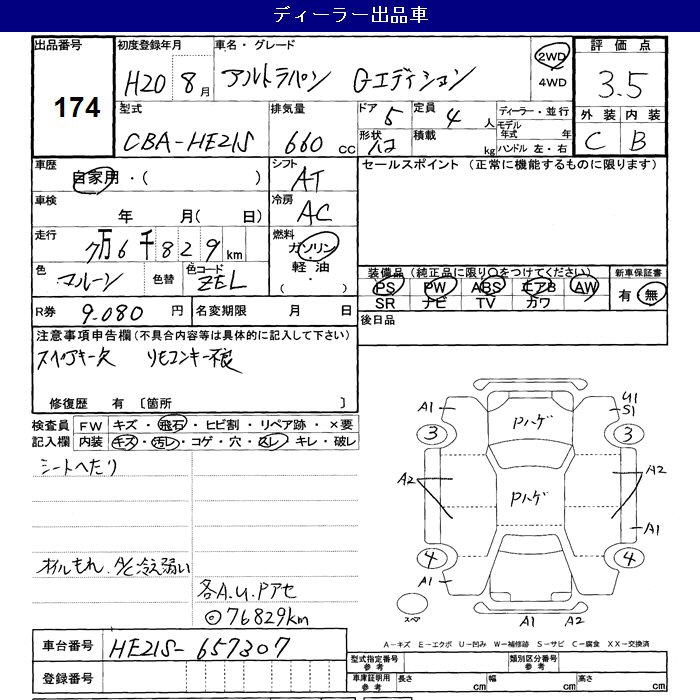 ディーラー出品車
出品番号 初度登録年月 車名・グレード 評価点
174
H20 8月 アルトラパン Gエディション 2WD 4WD 3.5
型式 排気量 ドア 定員 ディーラー・並行 外装 内装
CBA-HE21S 660 cc 5 4人 モデル年式 年 C B
形状 積載 kg ハンドル 左・右
車歴 シフト セールスポイント (正常に機能するものに限ります)
自家用・( ) AT
車検 冷房
年 月( 日) AC
走行 燃料
7万6千829km ガソリン
軽油
色 色替 色コード 装備品(純正品に限り○をつけてください) 新車保証書
マルーン ZEL PS PW ABS エアB AW 有・無
SR ナビ TV カワ
R券 9.080 円 名変期限 月 日 後日品
注意事項申告欄(不具合内容等は具体的に記入して下さい)
スペアキー欠 リモコンキー不良
修復歴 有 〔箇所 〕
検査員 FW キズ・飛石・ヒビ割・リペア跡・×要
記入欄 内装 キズ・汚レ・コゲ・穴・スレ・キレ・破レ
シートへたり
オイルもれ. A/C冷え弱い
各A.U.Pアセ
◎76829km
A1 U1
S1
3 Pハゲ 3
A2 Pハゲ A2
A1
4 4
A1
スペア A1 A2
車台番号 HE21S-657307
A-キズ E-エクボ U-凹み W-補修跡 S-サビ C-腐食 XX-交換済
型式指定番号 参考 類別区分番号 参考
登録番号 車庫証明用 参考 長さ cm 幅 cm 高さ cm